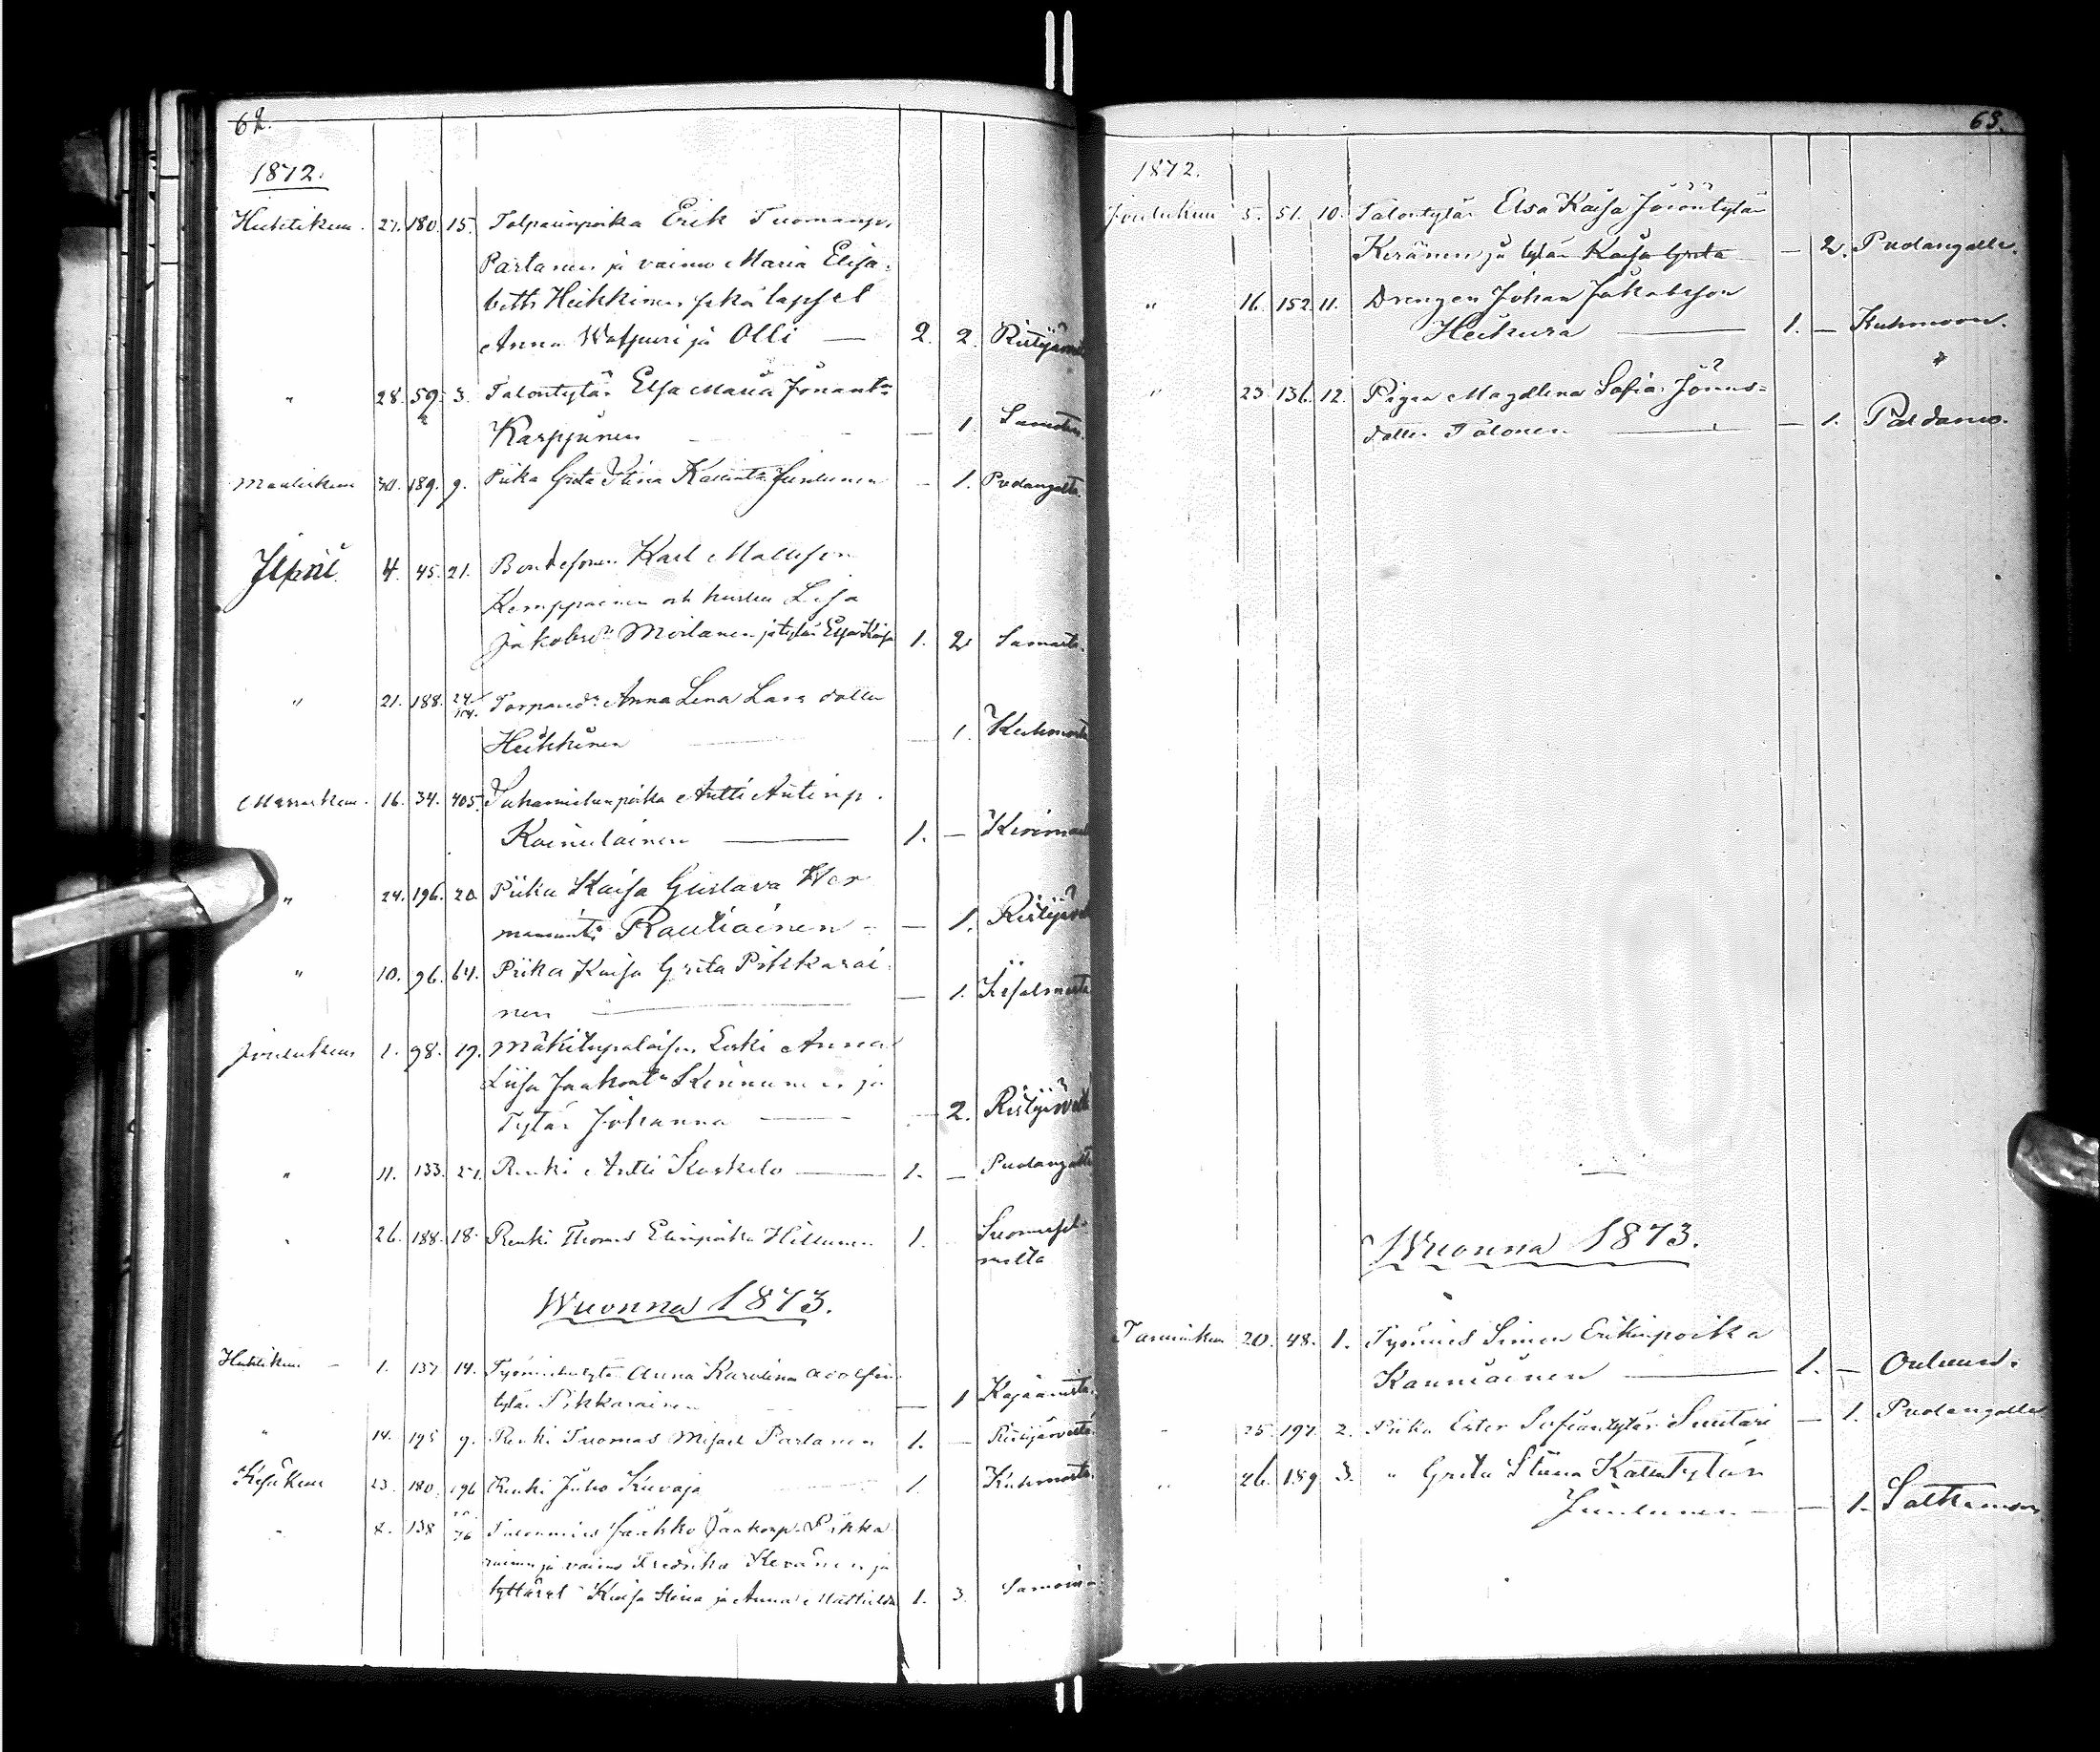 62.
1872.
Huhtikuu. 27. 180. 15. Tolparinpoika Erik Tuomanp.
Partanen ja vaimo Maria Elisa-
beth Heikkinen sekä lapset
Anna Walpuri ja Olli — 2. 2. Ristijärv
" 28. 59. 3. Talontytär Elsa Maria Jonant:
Karppinen — 1. Samoten.
30. 189. 9. Piika Greta Stina Kallent: Juntunen — 1. Pudangalta.
April 4. 45. 21. Bondesonen Karl Matsson
Kemppainen och hustru Lisa
Jakobsd:r Moilanen ja tytär Elsa Kaisa 1. 2 Samoten.
" 21. 188. 24/104. Torpared:r Anna Lena Lars dotter
Heikkinen — 1. Kuhmost
Marraskuu. 16. 34. 405. Antti Antinp.
Kainulainen — 1. —
" 24. 196. 20. Piika Kaisa Gustava Her
mannint: Rautiainen — — 1. Ristijärv
" 10. 96. 64. Piika Kaisa Greta Pikkarai-
nen — — 1.
Joulukuu 1. 98. 19. Mäkitupalaisen Leski Anna
Liisa Jaakont:r Kinnunen ja
Tytär Johanna — — 2. Ristijärvelt
" 11. 133. 27. Renki Antti Koskelo — 1. — Pudangalt
" 26. 188. 18. Renki Thomas Elianpoika Hiltunen 1. Suomusal-
melta
Wuonna 1873.
Huhtikuu — 1. 137 14. Anna Karolina Adolfin
tytär Pikkarainen — 1 Kajaanista.
" 14. 195 9. Renki Tuomas Mikael Partanen 1. — Ristijärveltä
Kesäkuu 23. 180. 196 Renki Juho Kuvaja 1. Kuhmosta.
" 138 76 Talonmies Jaakko Jaakonp. Pikka
rainen ja vaimo Fredrika Keränen ja
tyttäret Kaisa Stina ja Anna Mathilda 1. 3. Samoin
63.
1872.
Joulukuu 5. 51. 10. Talontytär Elsa Kaisa Jöröntytär
Keränen ja tytär Kaisa Greta — 2. Pudangalle.
" 16. 152 11. Drengen Johan Jakobsson
Heikura — 1. — Kuhmoon.
" 23 136. 12. Pigan Magdlena Sofia Jöns=
dotter Tolonen — — 1. Paldamo.
Wuonna 1873.
Tammikuu 20. 48. 1. Työmies Simon Erikinpoika
Kauniainen — 1. — Ouluun.
" 25. 197. 2. Piika Ester Sofiantytär Suutari — 1. Pudangalle
" 26. 189 3. " Greta Stiina Kallentytär
Juntunen — — 1. Sotkamoon